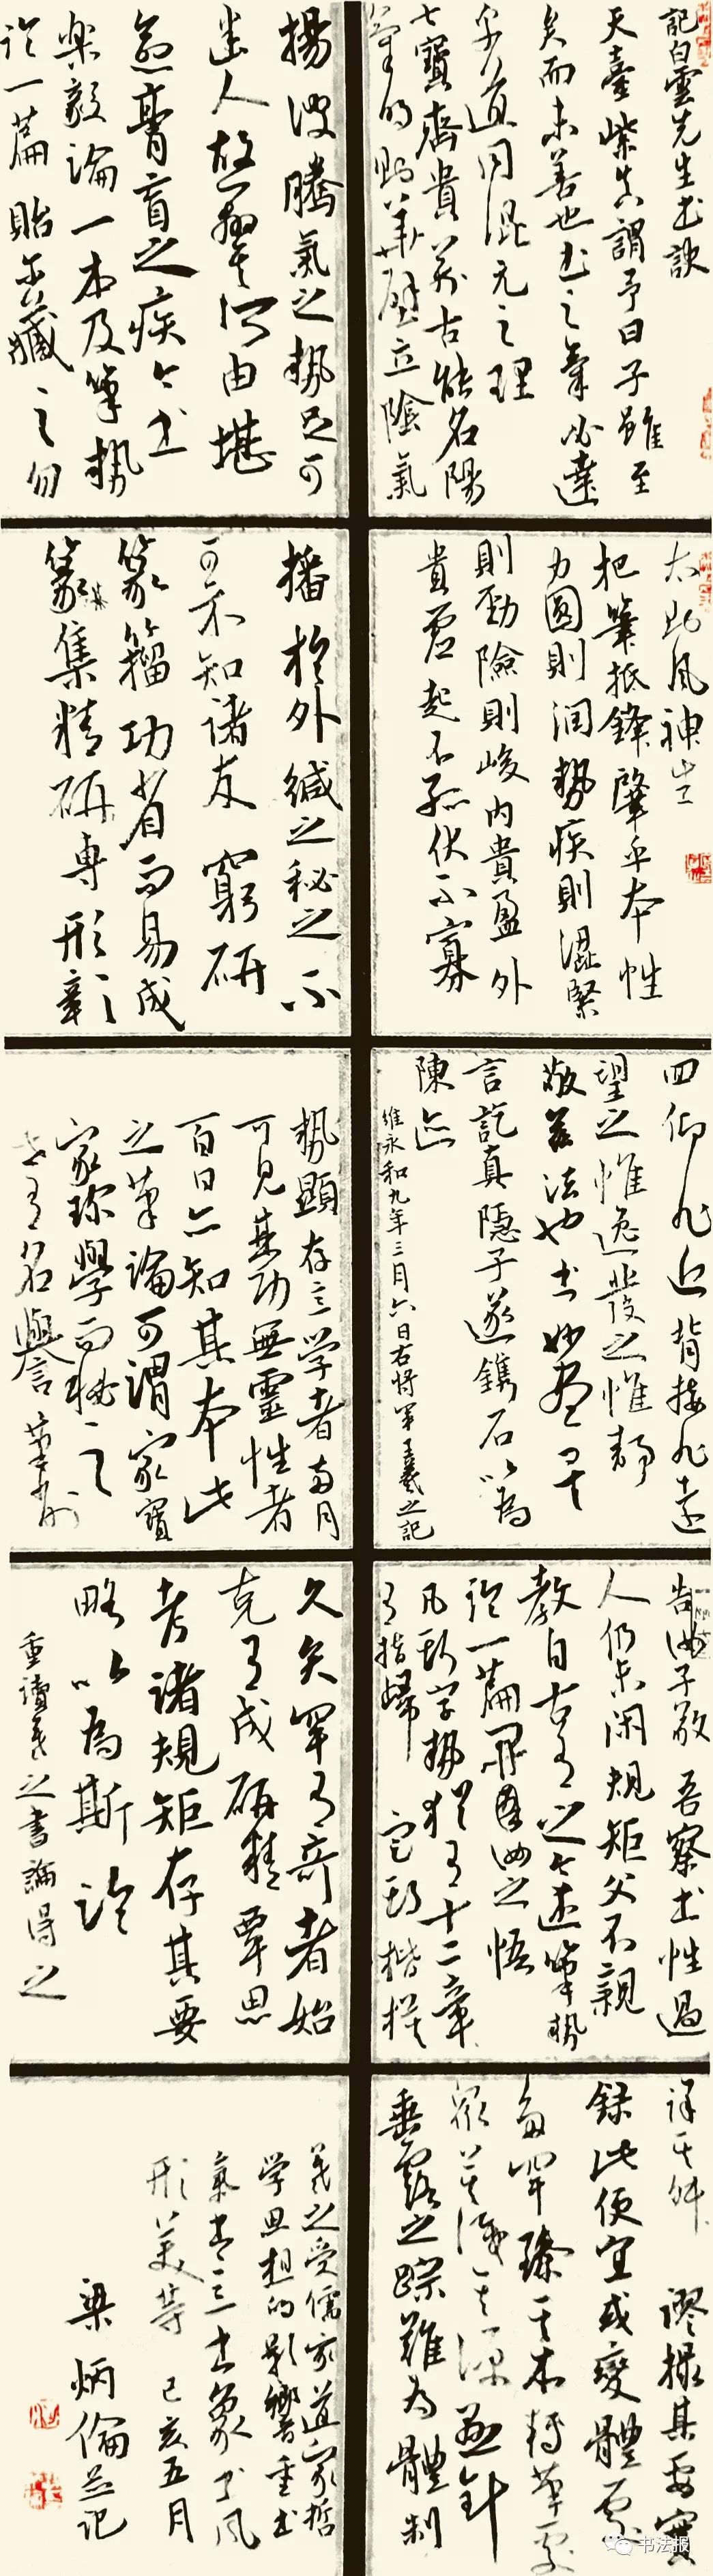 記白雲先生書訣
天臺紫真謂予曰子雖至
矣而未善也書之氣必達
乎道同混元之理
七寶齊貴萬古能名陽
氣明則華壁立陰氣
太則風神生
把筆抵鋒肇乎本性
力圓則潤勢疾則澀緊
則勁險則峻內貴盈外
貴虛起不孤伏不寡
回仰非近背接非遠
望之惟逸發之惟靜
敬茲法也書妙盡矣
言訖真隱子遂鐫石以為
陳迹
維永和九年三月六日右將軍王羲之記
告汝子敬吾察書性過
人仍未閑規矩父不親
教自古有之今述筆勢
論一篇開汝之悟
凡斯字勢猶有十二章
有指歸 定其楷模
詳其舛 謬撮其要實
錄此便宜或變體處
多罕臻其本轉筆處
眾莫識其源懸針
垂露之蹤難為體制
揚波騰氣之勢足可
迷人故辨其所由堪
愈膏肓之疾今書
樂毅論一本及筆勢
論一篇貽爾藏之勿
播於外緘之秘之不
可示知諸友 窮研
篆籀功省而易成
纂集精研專形彰
勢顯存意學者兩月
可見其功無靈性者
百日亦知其本此
之筆論可謂家寶
家珍學而秘之
世有名譽 筆削
久矣罕有奇者始
克有成研精覃思
考諸規矩存其要
略以為斯論
重讀羲之書論得之
羲之受儒家道家哲
學思想的影響重書
氣書意書象書風
形美等 己亥五月
梁炳倫並記
书法报